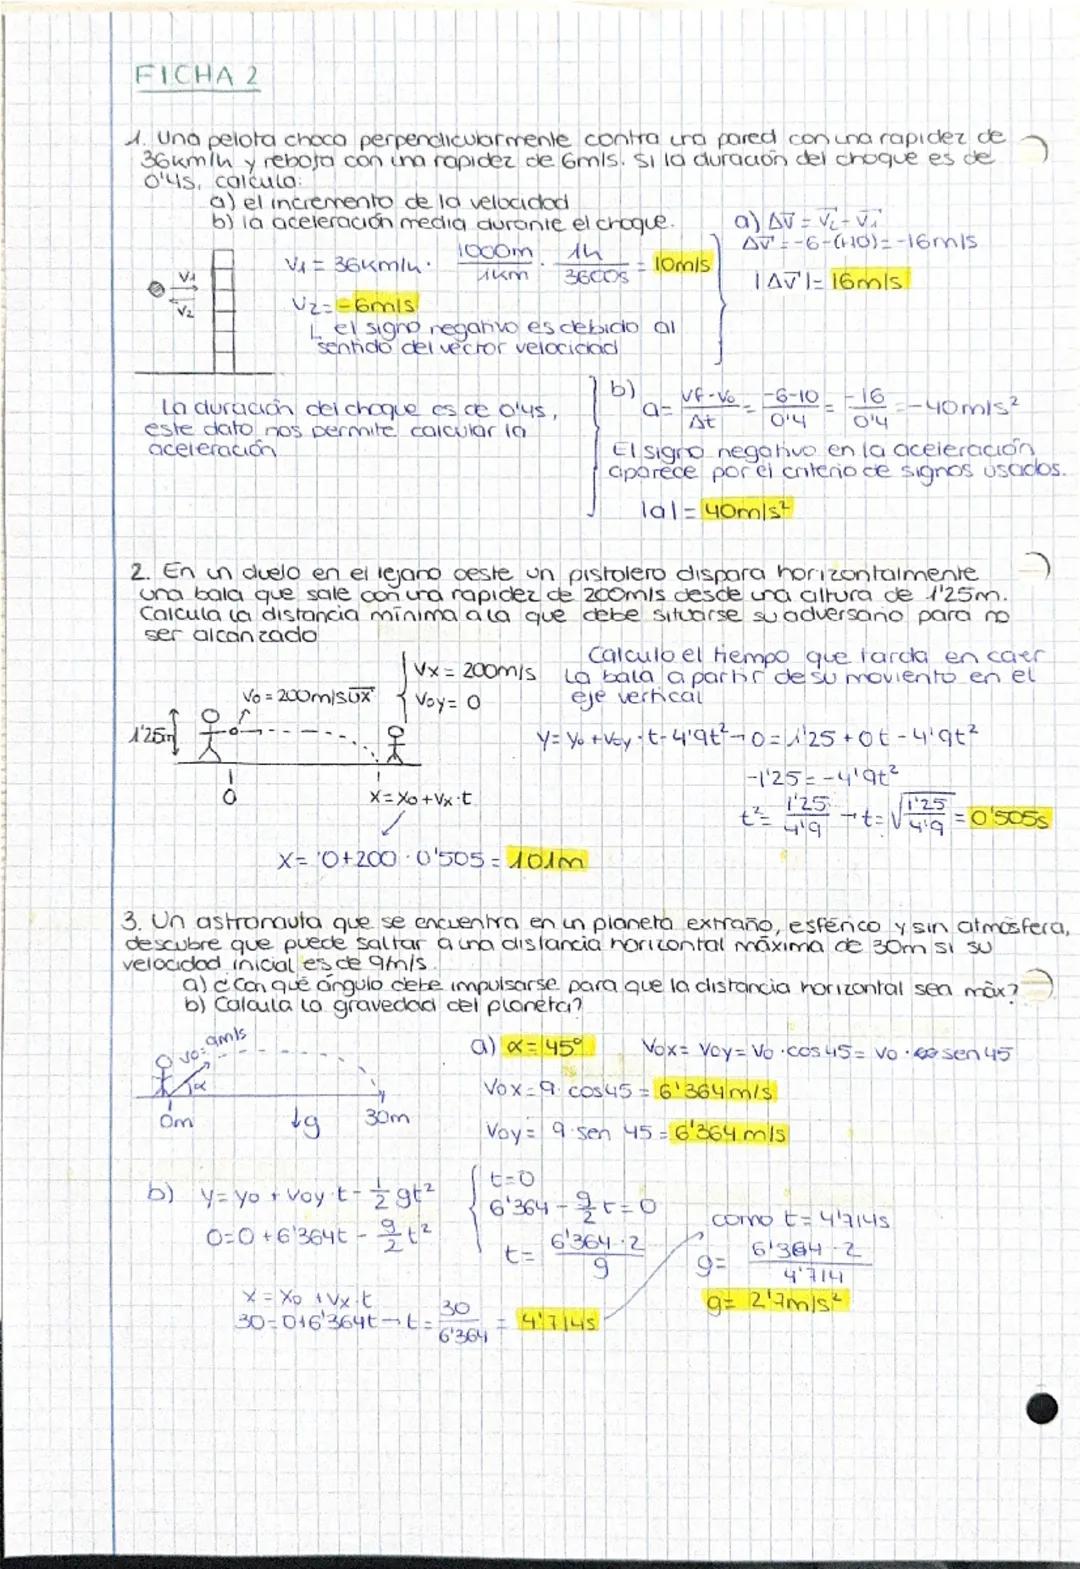 FICHA 2
1. Una pelota choca perpendicularmente contra una pared con una rapidez de
36km/h y rebota con una rapidez de 6m/s. Si la duración del choque es de
0'4s, calcula:
a) el incremento de la velocidad
b) la aceleración media durante el choque.
V1 = 36km/h · 1000m/1km · 1h/3600s = 10m/s
V1
V2
V2 = -6m/s
↳ el signo negativo es debido al
sentido del vector velocidad
a) ΔV⃗ = V⃗2 - V⃗1
ΔV⃗ = -6-(+10) = -16m/s
|ΔV⃗| = 16m/s
La duración del choque es de 0'4s,
este dato nos permite calcular la
aceleración
b) a = Vf-Vo/Δt = -6-10/0'4 = -16/0'4 = -40m/s²
El signo negativo en la aceleración
aparece por el criterio de signos usados.
|a| = 40m/s²
2. En un duelo en el lejano oeste un pistolero dispara horizontalmente
una bala que sale con una rapidez de 200m/s desde una altura de 1'25m.
Calcula la distancia mínima a la que debe situarse su adversario para no
ser alcanzado
Vo = 200m/s u⃗x
Vx = 200m/s
Voy = 0
1'25m
0
x = xo + Vx · t
x = 0+200 · 0'505 = 101m
Calculo el tiempo que tarda en caer
la bala a partir de su moviento en el
eje vertical
y = yo + Voy · t - 4'9t² → 0 = 1'25 + 0t - 4'9t²
-1'25 = -4'9t²
t² = 1'25/4'9 → t = √1'25/4'9 = 0'505s
3. Un astronauta que se encuentra en un planeta extraño, esférico y sin atmósfera,
descubre que puede saltar a una distancia horizontal máxima de 30m si su
velocidad inicial es de 9m/s.
a) ¿Con qué ángulo debe impulsarse para que la distancia horizontal sea máx?
b) Calcula la gravedad del planeta?
Vo = 9m/s
α
0m
↓g
30m
a) α = 45º
Vox = Voy = Vo · cos45 = Vo · sen45
Vox = 9 · cos45 = 6'364m/s
Voy = 9 · sen 45 = 6'364 m/s
b) y = yo + Voy · t - 1/2 gt²
0 = 0 + 6'364t - g/2 t²
t = 0
6'364 - g/2 t = 0
t = 6'364 · 2/g
x = xo + Vx · t
30 = 0+6'364t → t = 30/6'364 = 4'714s
como t = 4'714s
g = 6'364 · 2/4'714
g = 2'7m/s²